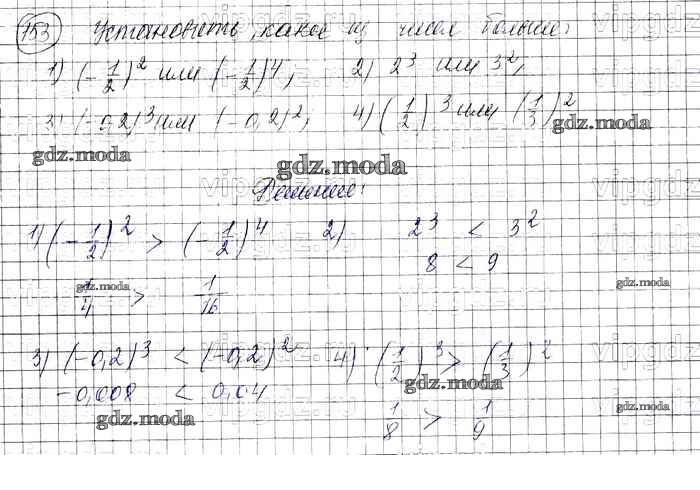 753 Установить, какое из чисел больше:
1) (-1/2)^2 или (-1/2)^4; 2) 2^3 или 3^2;
3) (-0,2)^3 или (-0,2)^2; 4) (1/2)^3 или (1/3)^2
gdz.moda
gdz.moda
gdz.moda
Решение:
1) (-1/2)^2 > (-1/2)^4 2) 2^3 < 3^2
8 < 9
1/4 > 1/16
gdz.moda
gdz.moda
3) (-0,2)^3 < (-0,2)^2 4) (1/2)^3 > (1/3)^2
-0,008 < 0,04
gdz.moda
gdz.moda
1/8 > 1/9
gdz.moda
gdz.moda